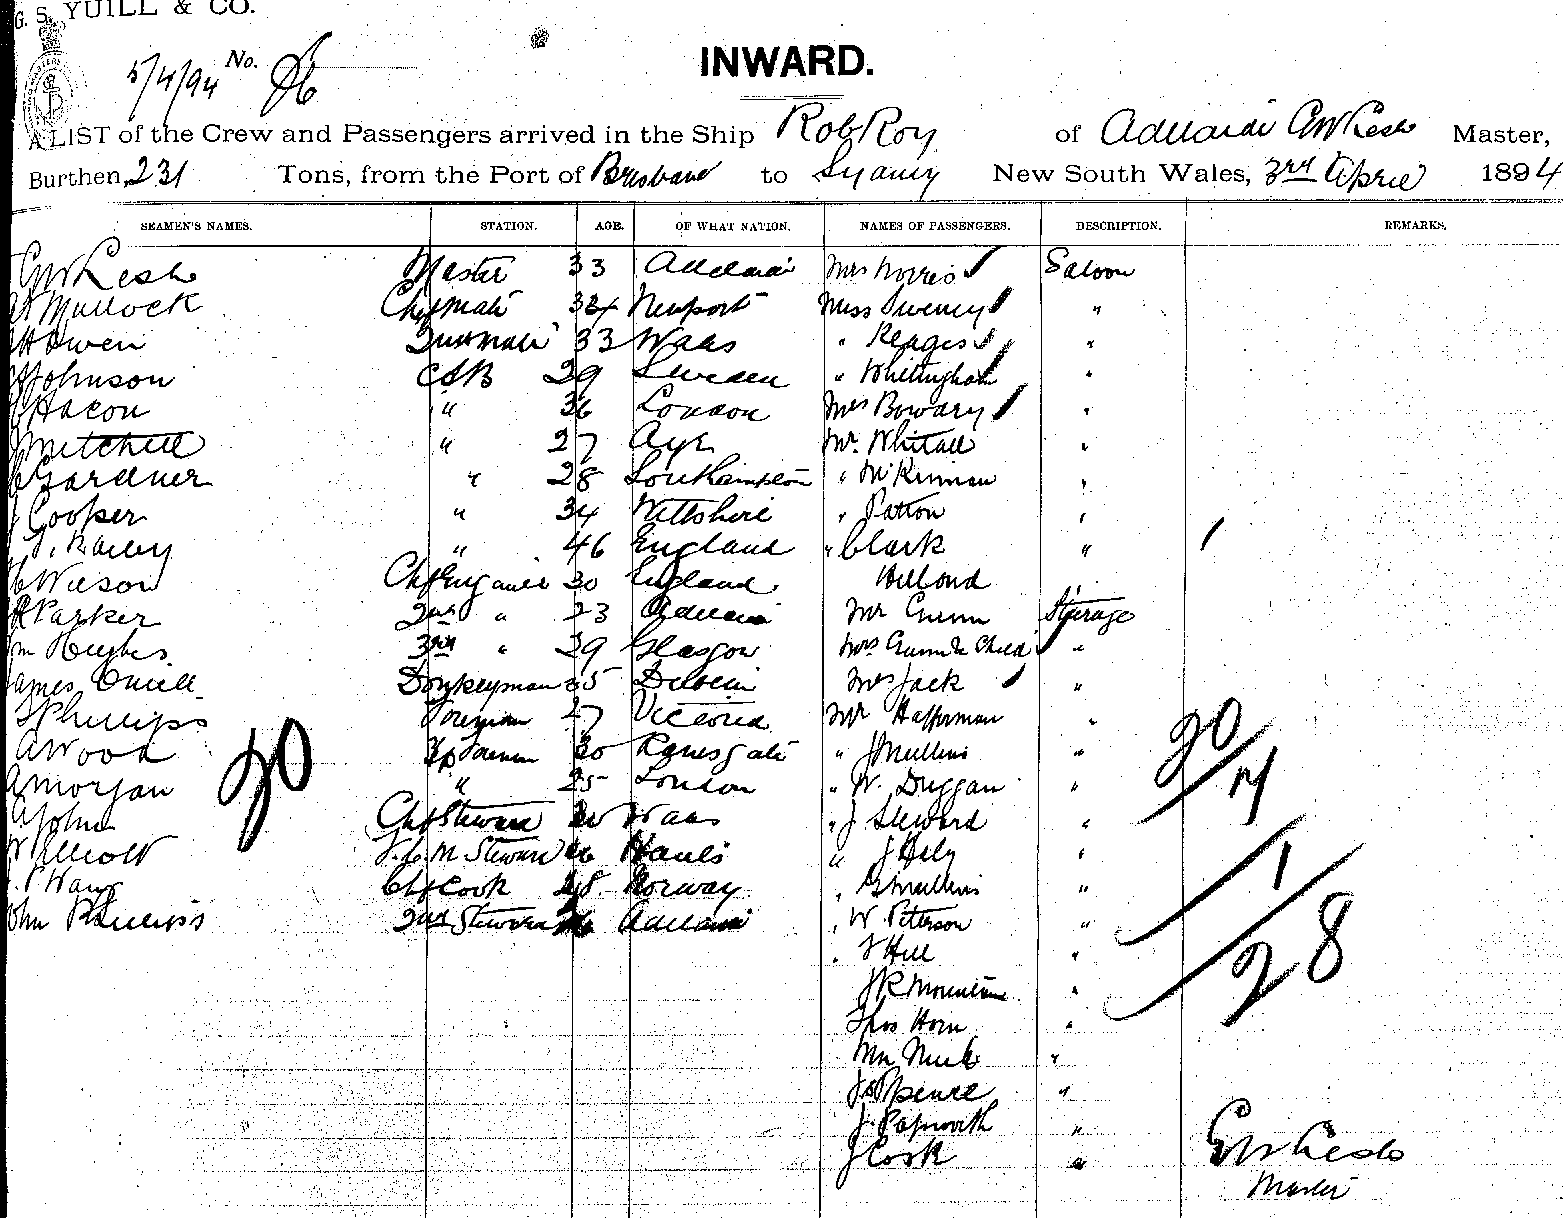 G. S. YUILL & CO.
5/4/94 No. 86
INWARD.
A LIST of the Crew and Passengers arrived in the Ship Rob Roy of Adelaide Master,
Burthen, 231 Tons, from the Port of Brisbane to Sydney New South Wales, 3rd April 1894
SEAMEN'S NAMES. STATION. AGE. OF WHAT NATION. NAMES OF PASSENGERS. DESCRIPTION. REMARKS.
Master 33 Adelaide Mrs Norris Saloon
Mullock Chf mate 34 Newport Miss Sweeney "
Owen 33 Waas " "
Johnson 29 Sweden " Whittingham "
Hacon " 36 London Mrs Bowary "
Mitchell " 27 Ayr Mr. Whitall "
Gardner " 28 Southampton " McKinnan "
Cooper " 34 Wiltshire " Patton "
Bailey " 46 England " Clark "
Wilson Chf Engineer 30 England
Parker 2nd " 23 Adelaide Mr Gunn Sturage
Hughes 3rd " 29 Glasgow Mrs Gunn & Child "
James Oneill Donkeyman Dublin Mrs Jack "
Phillips Foreman 27 Victoria Mr Hafferman "
A Wood 30 Ramsgate " J Mullins "
A Morgan " 25 London " W. Duggan "
A John Chf Steward Waas " J Steward "
Elliott Steward " J Hely "
Chf Cook 28 Norway " G Mullins "
John Phillips 2nd Steward Adelaide " W. Peterson "
" J Hill "
J R Mountain "
Thos Horn "
"
J Spence "
J. Papworth "
J Cook "
20
20/4
1/28
Master